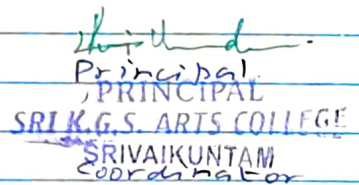 Principal
PRINCIPAL
SRI K.G.S. ARTS COLLEGE
SRIVAIKUNTAM
Coordinator